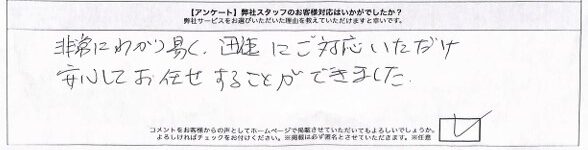 【アンケート】弊社スタッフのお客様対応はいかがでしたか?
弊社サービスをお選びいただいた理由を教えていただけますと幸いです。
非常にわかり易く、迅速にご対応いただけ
安心してお任せすることができました。
コメントをお客様からの声としてホームページで掲載させていただいてもよろしいでしょうか。
よろしければチェックをお付けください。※掲載は必ず匿名とさせていただきます。※任意